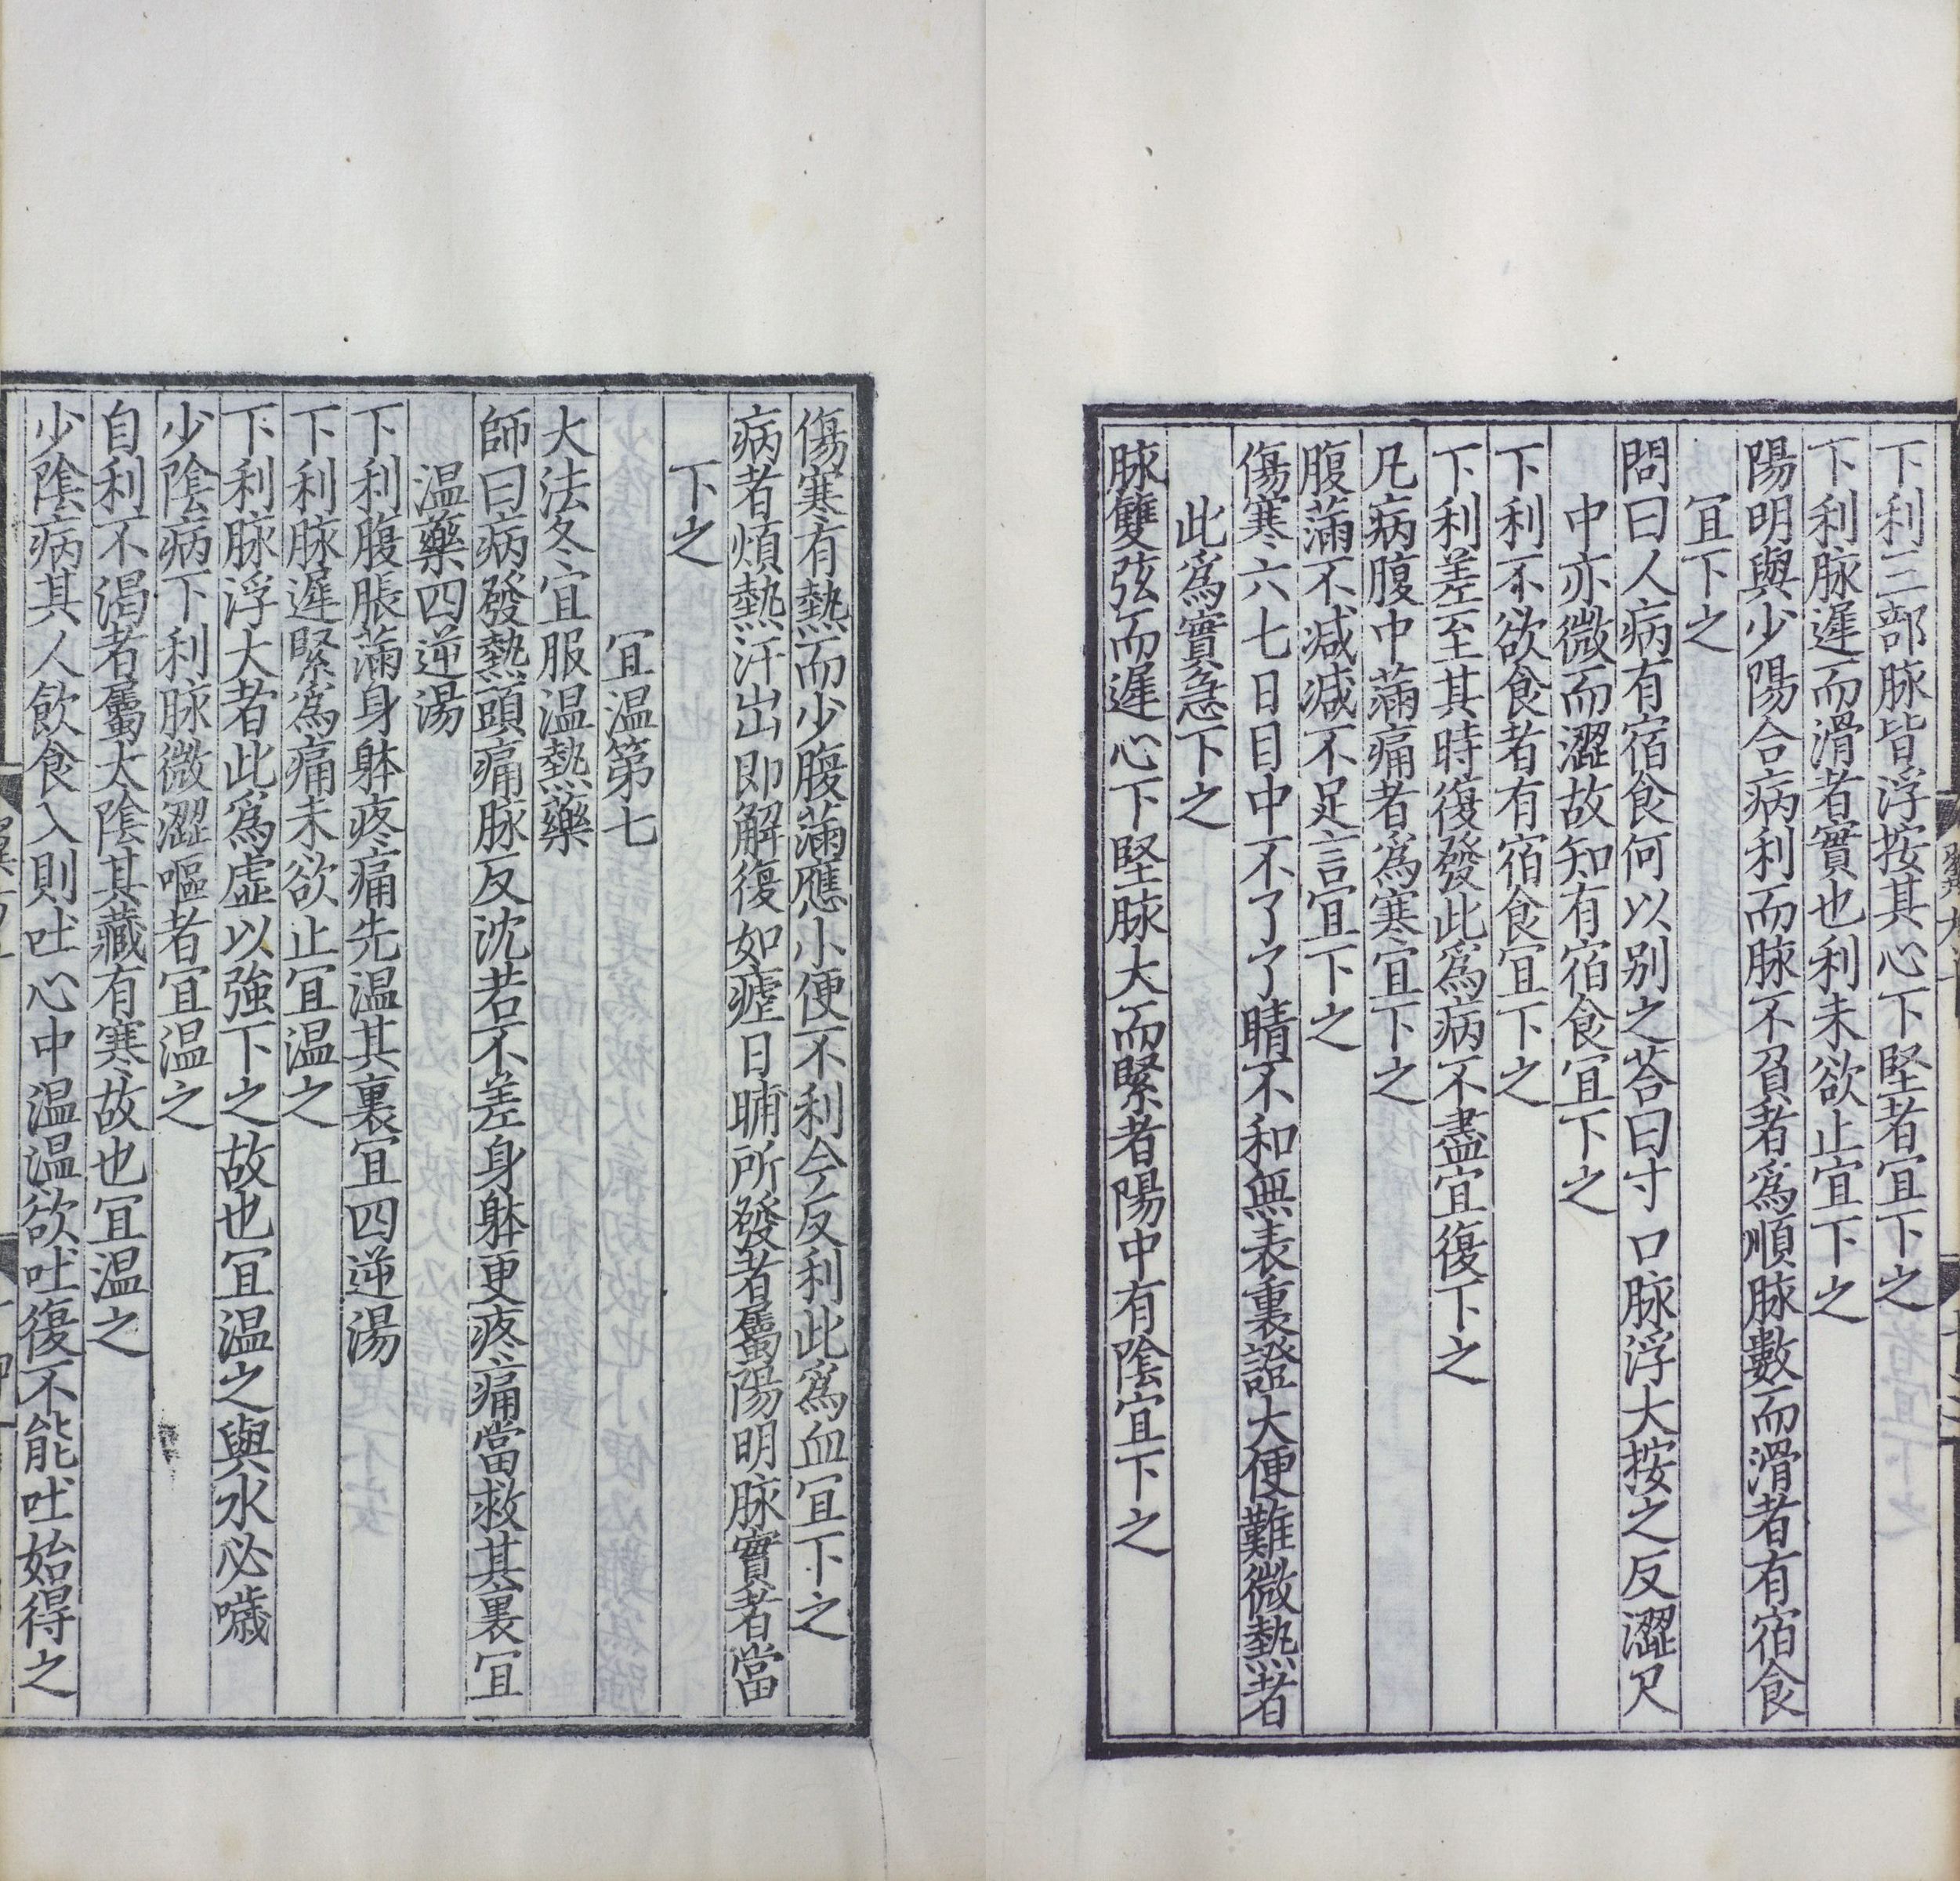 下利三部脉皆浮按其心下堅者宜下之
下利脉遲而滑者實也利未欲止宜下之
陽明與少陽合病利而脉不負者爲順脉數而滑者有宿食
宜下之
問曰人病有宿食何以别之荅曰寸口脉浮大按之反澀尺
中亦微而澀故知有宿食宜下之
下利不欲食者有宿食宜下之
下利差至其時復發此爲病不盡宜復下之
凡病腹中滿痛者爲寒宜下之
腹滿不减减不足言宜下之
傷寒六七日目中不了了睛不和無表裏證大便難微熱者
此爲實急下之
脉雙弦而遲心下堅脉大而緊者陽中有陰宜下之
傷寒有熱而少腹滿應小便不利今反利此爲血宜下之
病者煩熱汗出即解復如瘧日晡所發者屬陽明脉實者當
下之
宜温第七
大法冬宜服温熱藥
師曰病發熱頭痛脉反沈若不差身躰更疼痛當救其裏宜
温藥四逆湯
下利腹脹滿身躰疼痛先温其裏宜四逆湯
下利脉遲緊爲痛未欲止宜温之
下利脉浮大者此爲虚以強下之故也宜温之與水必噦
少陰病下利脉微澀嘔者宜温之
自利不渴者屬太陰其藏有寒故也宜温之
少陰病其人飲食入則吐心中温温欲吐復不能吐始得之